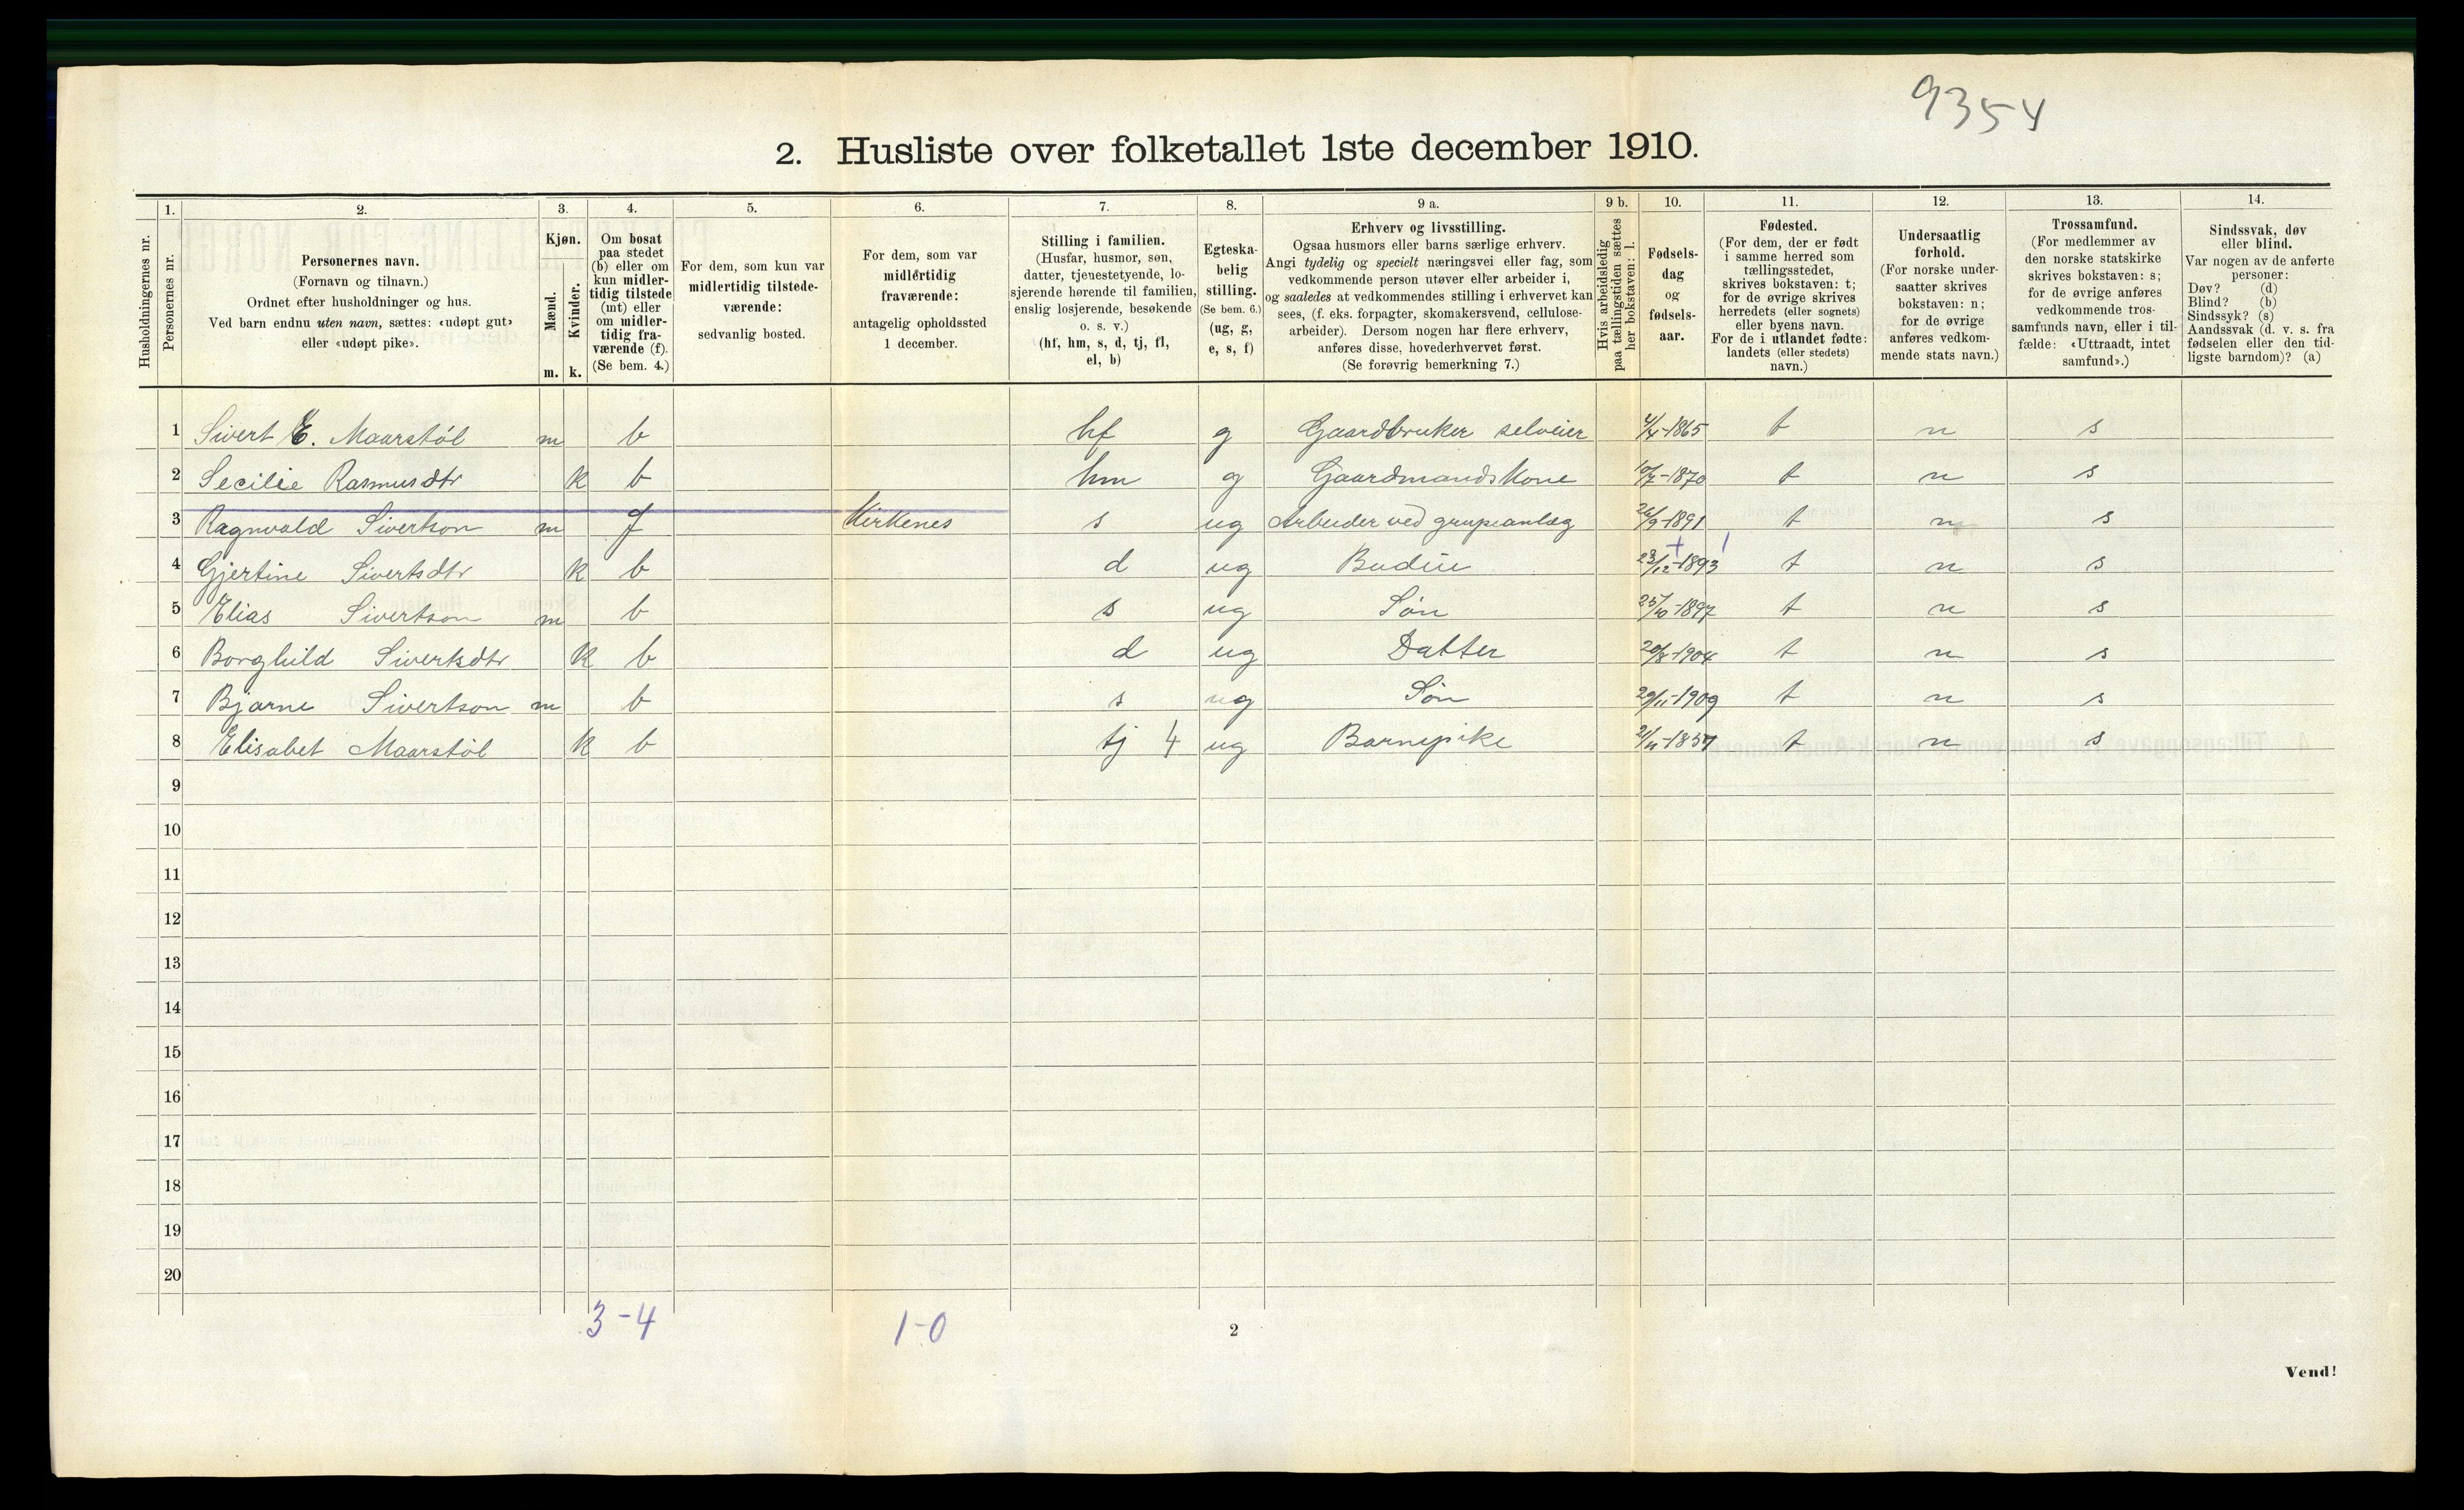 9354
2. Husliste over folketallet 1ste december 1910.
Husholdningernes nr.
1. Personernes nr.
2. Personernes navn.
(Fornavn og tilnavn.)
Ordnet efter husholdninger og hus.
Ved barn endnu uten navn, sættes: «udøpt gut»
eller «udøpt pike».
3. Kjøn.
Mænd. m.
Kvinder. k.
4. Om bosat
paa stedet
(b) eller om
kun midler-
tidig tilstede
(mt) eller
om midler-
tidig fra-
værende (f).
(Se bem. 4.)
5. For dem, som kun var
midlertidig tilstede-
værende:
sedvanlig bosted.
6. For dem, som var
midlertidig
fraværende:
antagelig opholdssted
1 december.
7. Stilling i familien.
(Husfar, husmor, søn,
datter, tjenestetyende, lo-
sjerende hørende til familien,
enslig losjerende, besøkende
o. s. v.)
(hf, hm, s, d, tj, fl,
el, b)
8. Egteska-
belig
stilling.
(Se bem. 6.)
(ug, g,
e, s, f)
9 a. Erhverv og livsstilling.
Ogsaa husmors eller barns særlige erhverv.
Angi tydelig og specielt næringsvei eller fag, som
vedkommende person utøver eller arbeider i,
og saaledes at vedkommendes stilling i erhvervet kan
sees, (f. eks. forpagter, skomakersvend, cellulose-
arbeider). Dersom nogen har flere erhverv,
anføres disse, hovederhvervet først.
(Se forøvrig bemerkning 7.)
9 b. Hvis arbeidsledig
paa tællingstiden sættes
her bokstaven: l.
10. Fødsels-
dag
og
fødsels-
aar.
11. Fødested.
(For dem, der er født
i samme herred som
tællingsstedet,
skrives bokstaven: t;
for de øvrige skrives
herredets (eller sognets)
eller byens navn.
For de i utlandet fødte:
landets (eller stedets)
navn.)
12. Undersaatlig
forhold.
(For norske under-
saatter skrives
bokstaven: n;
for de øvrige
anføres vedkom-
mende stats navn.)
13. Trossamfund.
(For medlemmer av
den norske statskirke
skrives bokstaven: s;
for de øvrige anføres
vedkommende tros-
samfunds navn, eller i til-
fælde: «Uttraadt, intet
samfund».)
14. Sindssvak, døv
eller blind.
Var nogen av de anførte
personer:
Døv? (d)
Blind? (b)
Sindssyk? (s)
Aandssvak (d. v. s. fra
fødselen eller den tid-
ligste barndom)? (a)
1 Sivert E. Maarstøl m b hf g Gaardbruker selveier 4/4-1865 t n s
2 Secilie Rasmusdtr k b hm g Gaardmandskone 10/7-1870 t n s
3 Ragnvald Sivertson m f Kirkenes s ug Arbeider ved grupeanlæg 26/9-1891 t n s
4 Gjertine Sivertsdtr k b d ug Budeie 23/12-1893 t n s
5 Elias Sivertson m b s ug Søn 25/10-1897 t n s
6 Borghild Sivertsdtr k b d ug Datter 20/8-1904 t n s
7 Bjarne Sivertson m b s ug Søn 29/11-1909 t n s
8 Elisabet Maarstøl k b tj 4 ug Barnepike 21/11-1857 t n s
9
10
11
12
13
14
15
16
17
18
19
20
3-4 1-0
2
Vend!